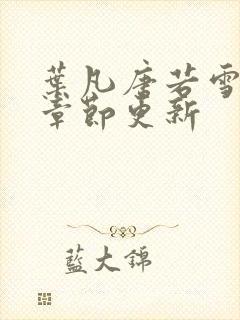 葉凡唐若雪
章節更新
藍大錦